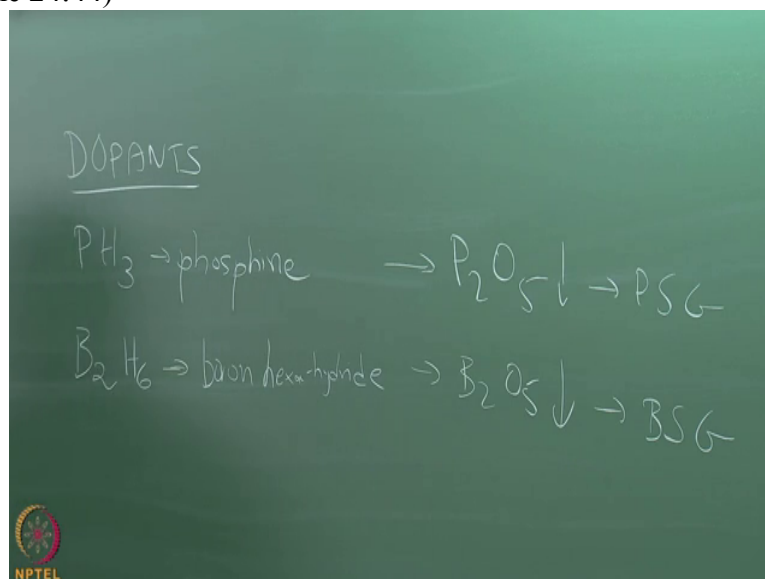 DOPANTS
PH₃ → phosphine → P₂O₅↓ → PSG
B₂H₆ → boron hexa-hydride → B₂O₅↓ → BSG
NPTEL